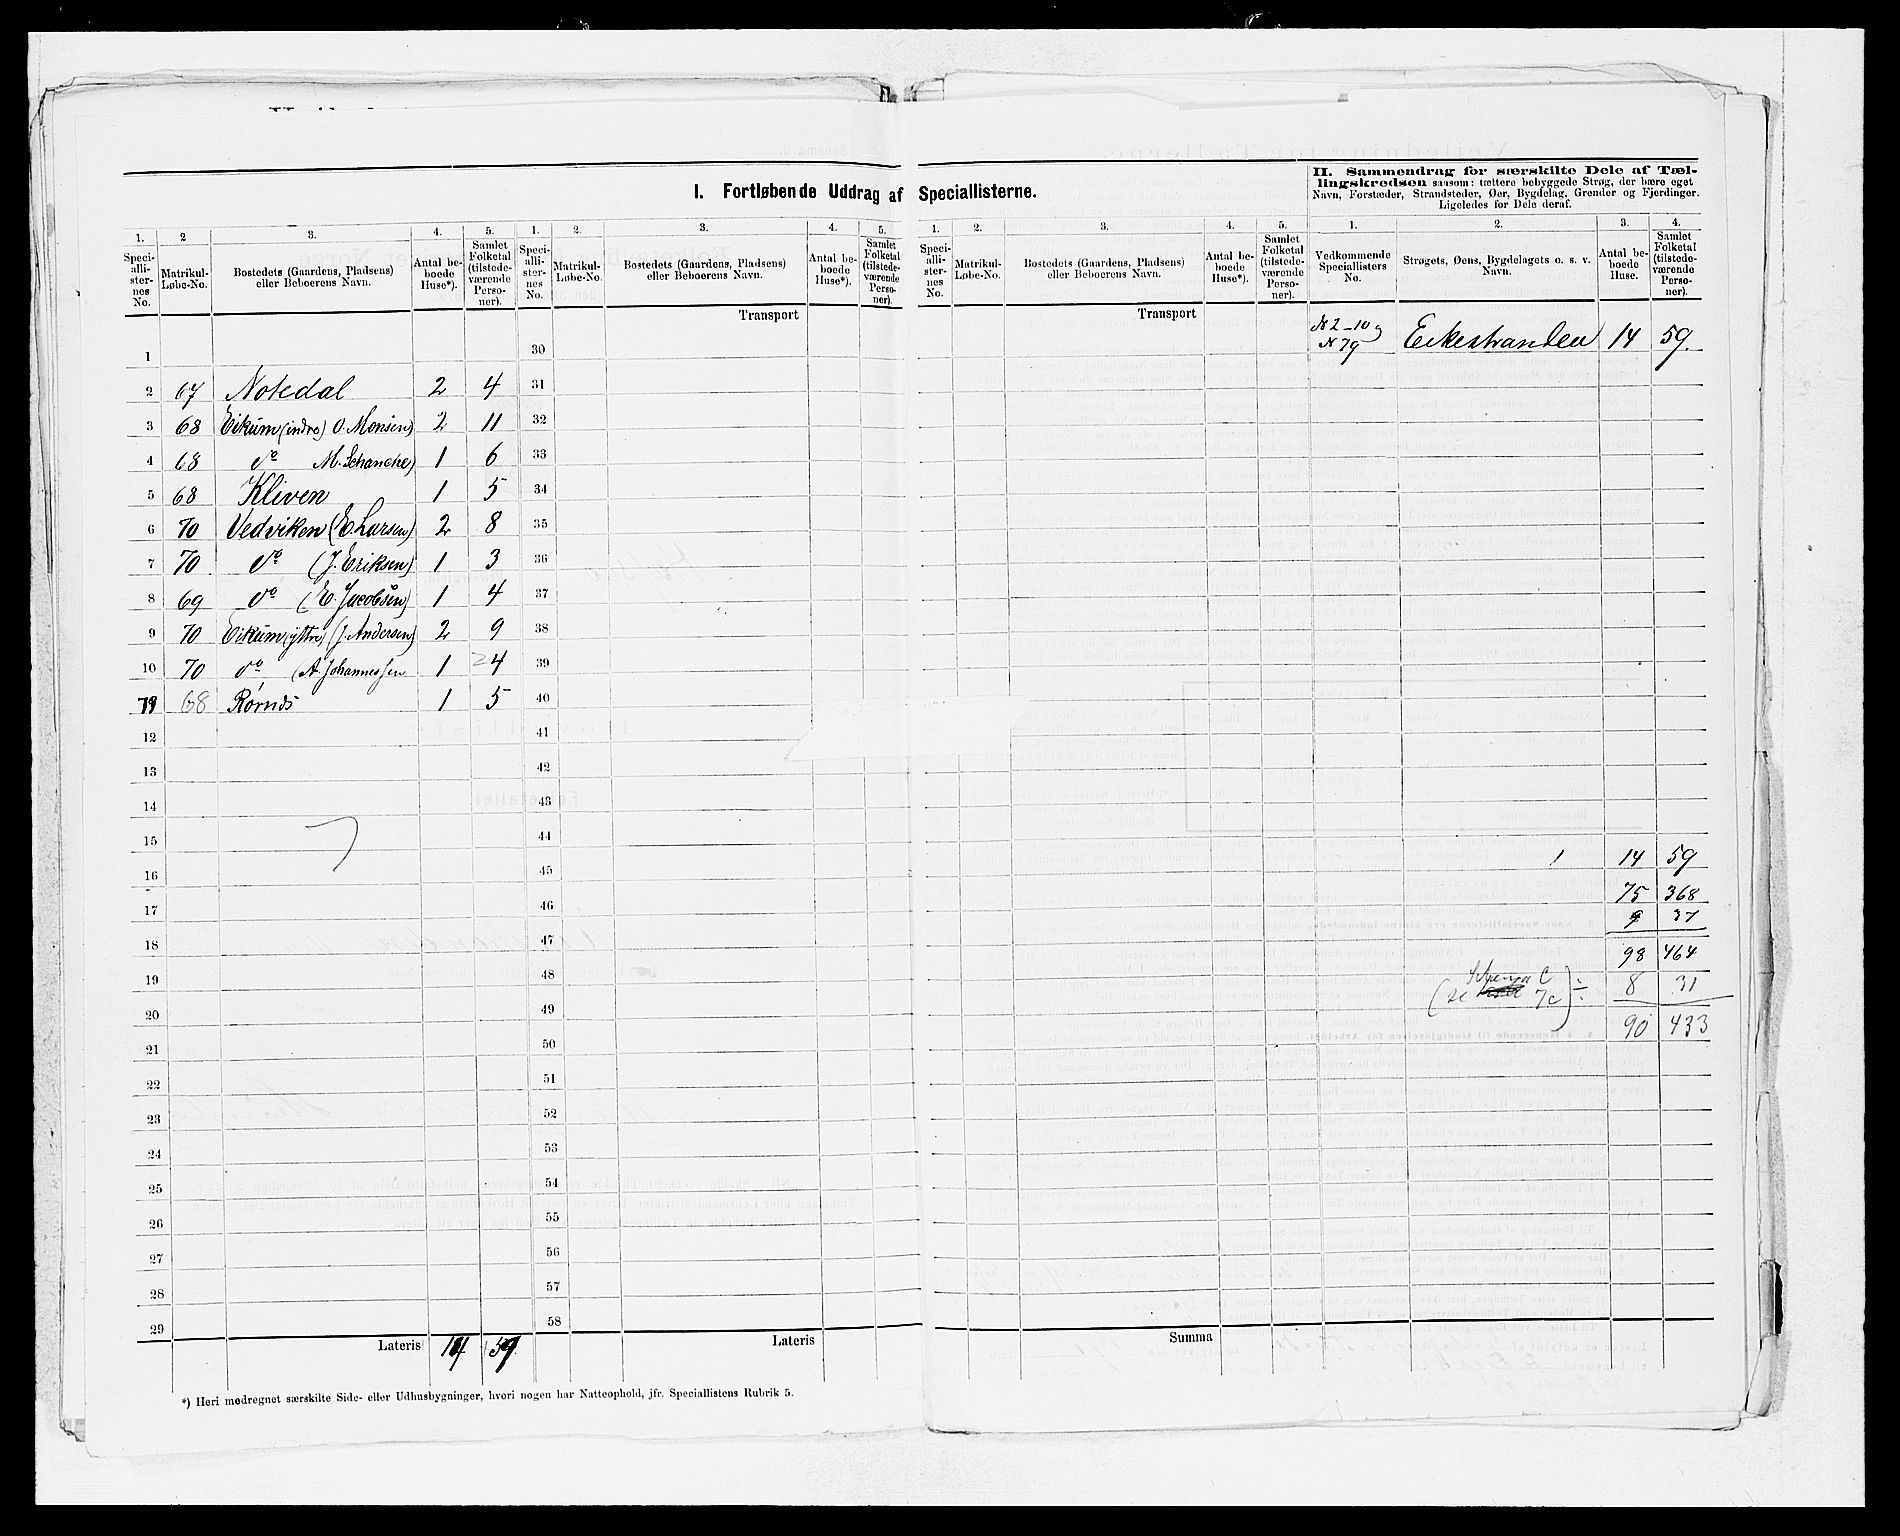 I. Fortløbende Uddrag af Speciallisterne.
II. Sammendrag for særskilte Dele af Tæl-
lingskredsen saasom: tættere bebyggede Strøg, der bære eget
Navn, Forstæder, Strandsteder, Øer, Bygdelag, Grender og Fjerdinger.
Ligeledes for Dele deraf.
1. 2 3. 4. 5. 1. 2. 3. 4. 5. 1. 2. 3. 4. 5. 1. 2. 3. 4.
Speci-
alli-
ster-
nes
No.
Matrikul-
Løbe-No.
Bostedets (Gaardens, Pladsens)
eller Beboerens Navn.
Antal be-
boede
Huse*).
Samlet
Folketal
(tilstede-
værende
Perso-
ner).
Speci-
alli-
ster-
nes
No.
Matrikul-
Løbe-No.
Bostedets (Gaardens, Pladsens)
eller Beboerens Navn.
Antal be-
boede
Huse*).
Samlet
Folketal
(tilstede-
værende
Perso-
ner).
Speci-
alli-
ster-
nes
No.
Matrikul-
Løbe-No.
Bostedets (Gaardens, Pladsens)
eller Beboerens Navn.
Antal be-
boede
Huse*).
Samlet
Folketal
(tilstede-
værende
Perso-
ner).
Vedkommende
Speciallisters
No.
Strøgets, Øens, Bygdelagets o. s. v.
Navn.
Antal be-
boede
Huse.
Samlet
Folketal
(tilstede-
værende
Perso-
ner).
Transport
Transport
1
2 67 Notedal 2 4
3 68 Eikum (indre) O. Monsen) 2 11
4 68 do M. Schanche) 1 6
5 68 Kliven 1 5
6 70 Vedviken (E. Larsen) 2 8
7 70 do (J. Eriksen) 1 3
8 69 do (E. Jacobsen) 1 4
9 70 Eikum (yttre) (J. Andersen) 2 9
10 70 do (A. Johannessen 1 4
79 68 Rørnes 1 5
12
13
14
15
16
17
18
19
20
21
22
23
24
25
26
27
28
29
Lateris 14 59
30
31
32
33
34
35
36
37
38
39
40
41
42
43
44
45
46
47
48
49
50
51
52
53
54
55
56
57
58
Lateris
Summa
N 2-10 og
N 79 Eikestranden 14 59.
1 14 59
75 368
9 37
98 464
(se Schema C 7c) ÷ 8 31
90 433
*) Heri medregnet særskilte Side- eller Udhusbygninger, hvori nogen har Natteophold, jfr. Speciallistens Rubrik 5.